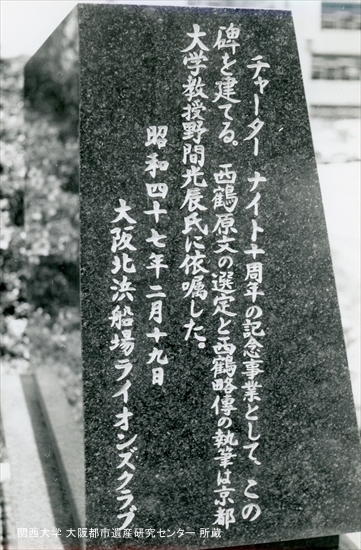 チャーター ナイト十周年の記念事業として、この
碑を建てる。西鶴原文の選定と西鶴略傳の執筆は京都
大学教授野間光辰氏に依嘱した。
昭和四十七年二月十九日
大阪北浜船場ライオンズクラブ
関西大学 大阪都市遺産研究センター 所蔵